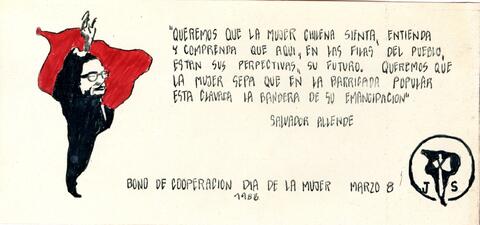 "QUEREMOS QUE LA MUJER CHILENA SIENTA, ENTIENDA
Y COMPRENDA QUE AQUI, EN LAS FILAS DEL PUEBLO,
ESTAN SUS PERPECTIVAS, SU FUTURO. QUEREMOS QUE
LA MUJER SEPA QUE EN LA BARRICADA POPULAR
ESTA CLAVADA LA BANDERA DE SU EMANCIPACION"
SALVADOR ALLENDE
BONO DE COOPERACION DIA DE LA MUJER MARZO 8
1986
J S